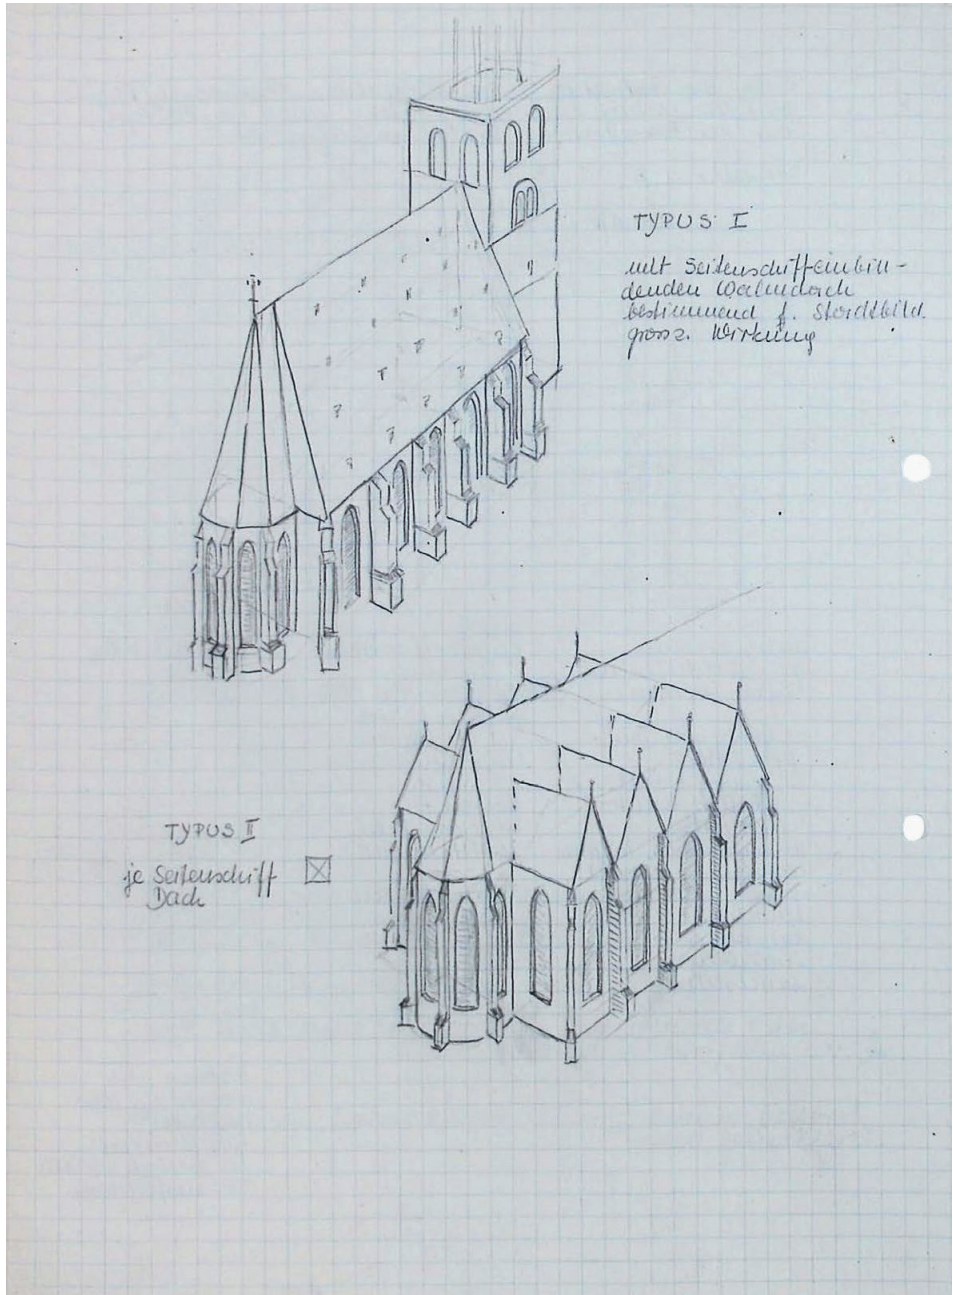 TYPUS I
mit Seitenschiffeinbin-
denden Walmdach
bestimmend f. Stadtbild.
grosse Wirkung
TYPUS II
je Seitenschiff
Dach